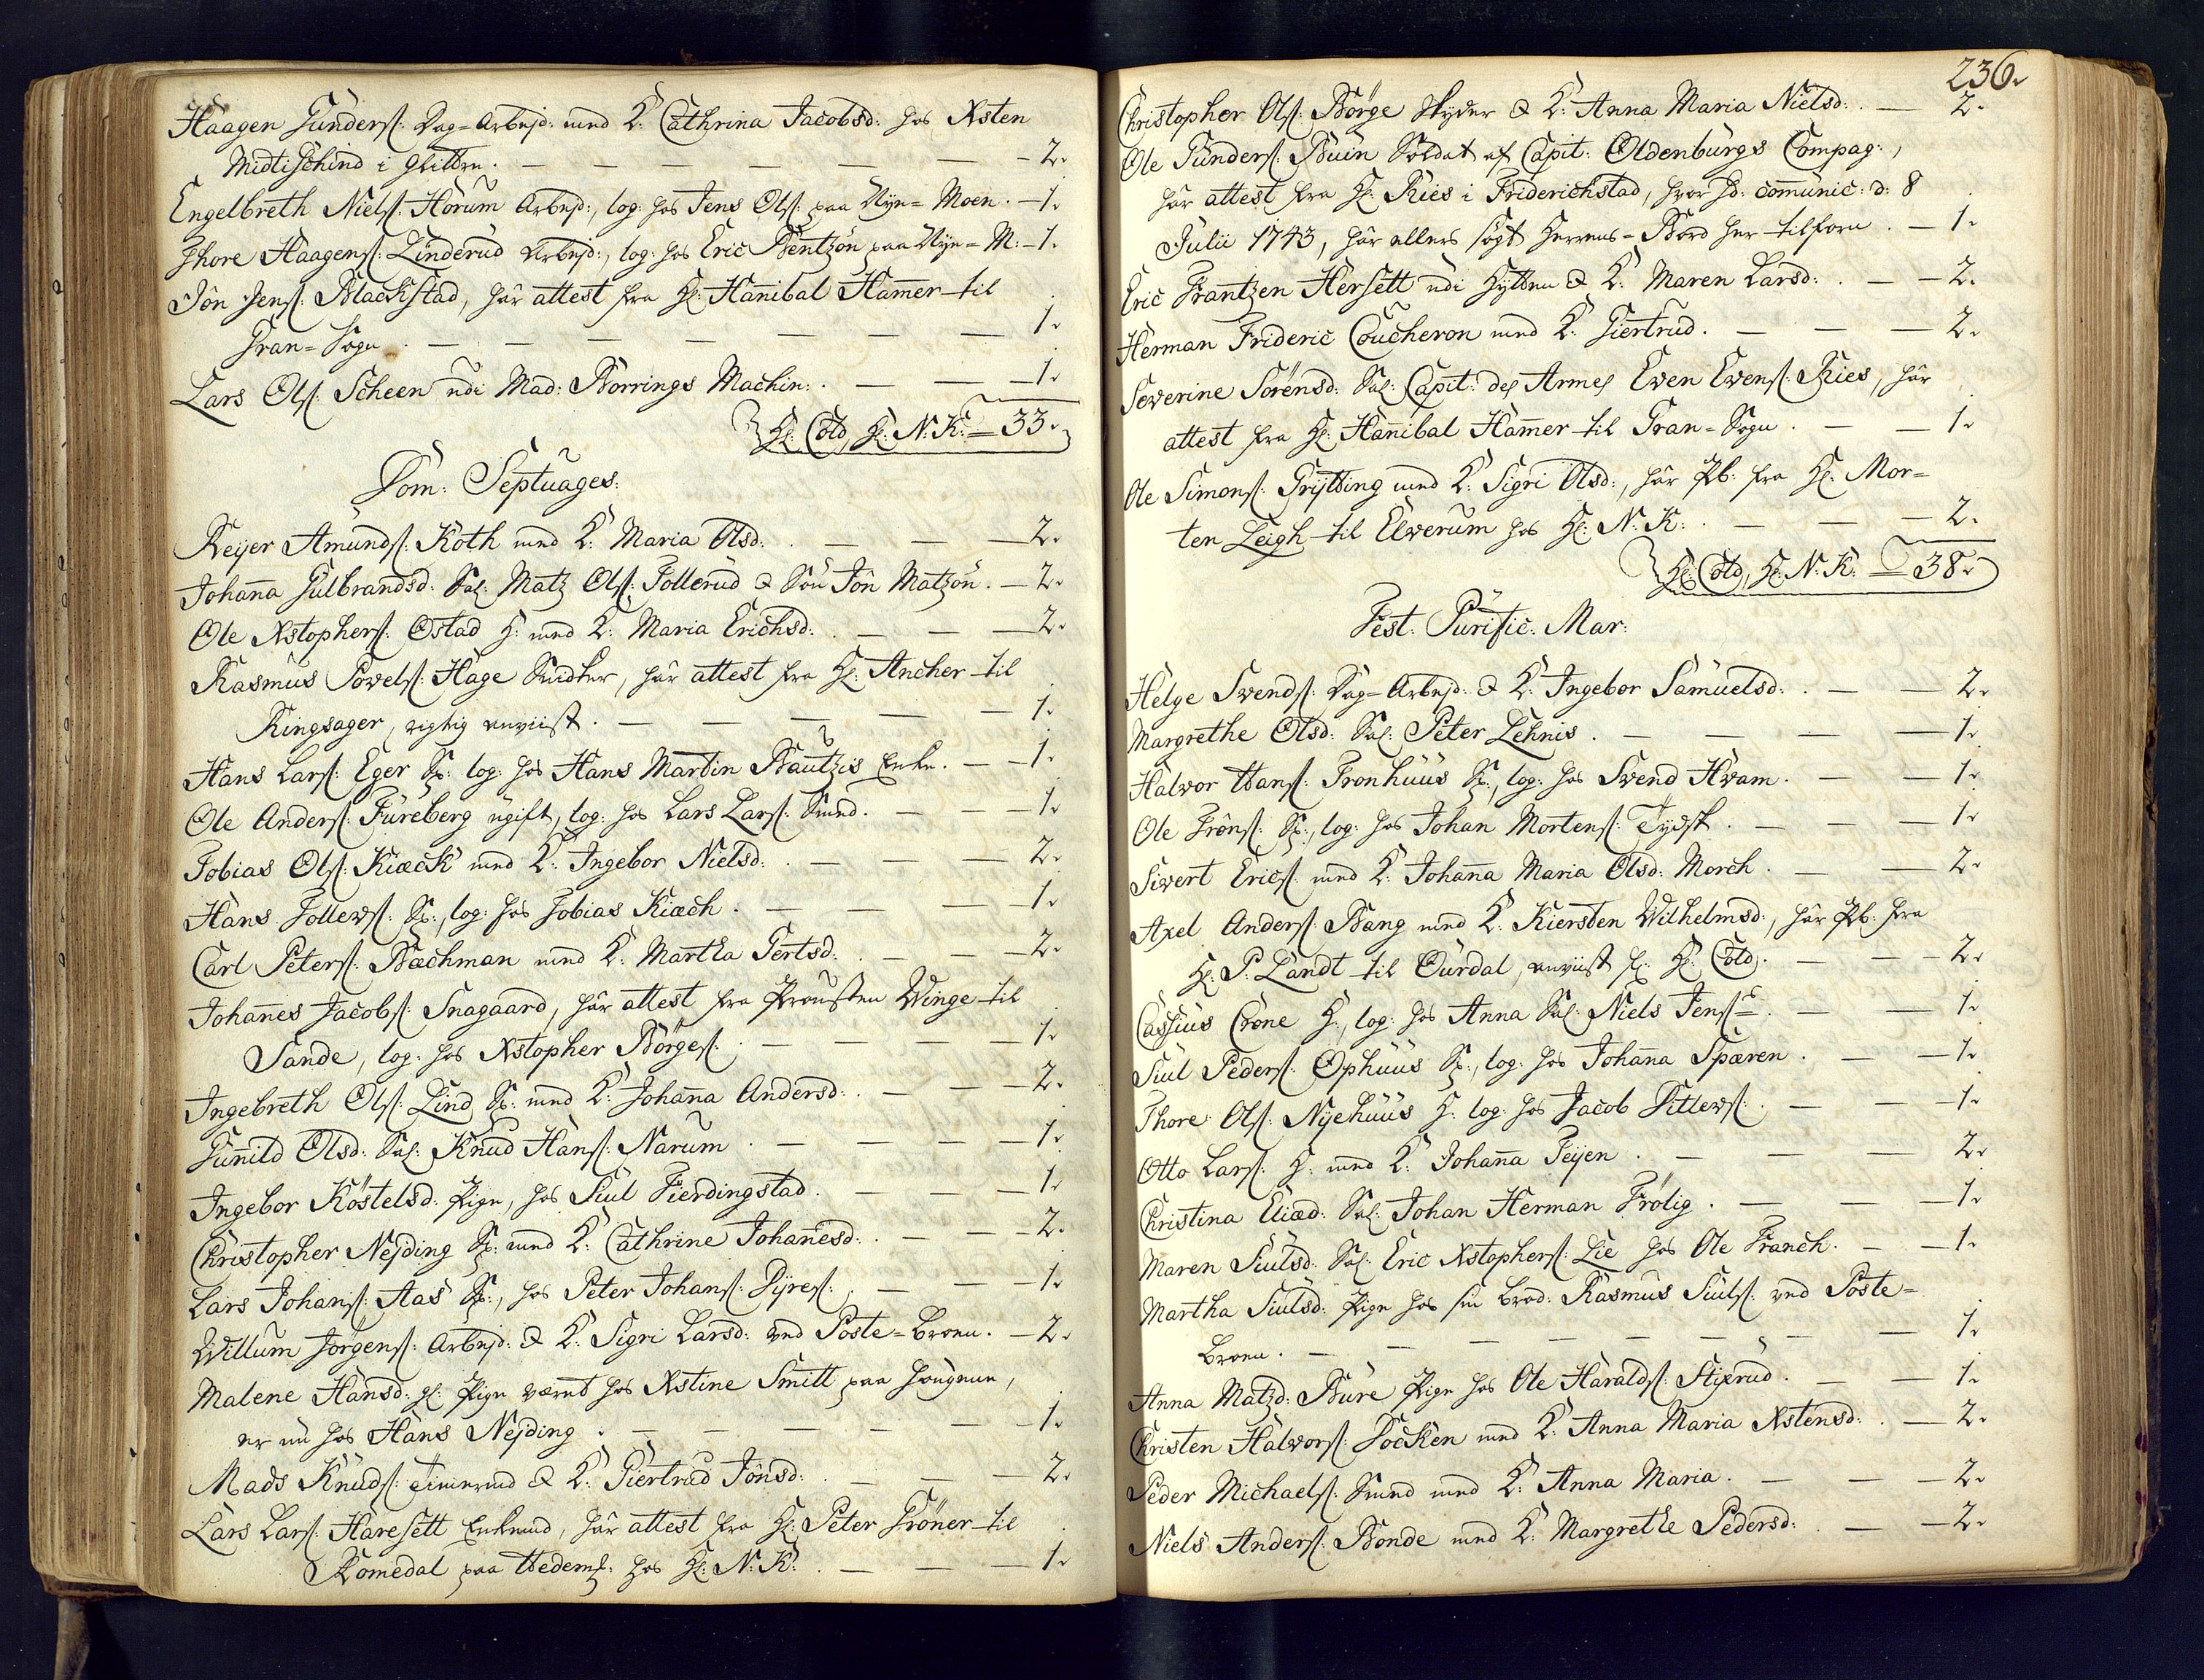 Haagen Gunders: Dag=Arbejd: med K: Cathrina Jacobsd: hos Xsten
Midtischind i glitten. — 2.
Engelbreth Niels: Horum Arbejd:, log: hos Jens Ols: paa Nye=Moen. — 1.
Thore Haagens: Linderud Arbejd:, log: hos Eric Bentzôn paa Nye=M: — 1.
Jôn Jens: Blackstad, hâr attest fra Hr: Hannibal Hammer til
Gran=Sogn. — 1.
Lars Ols: Scheen udi Mad: Borrings Machin: — 1.
Hr: Côld, Hr: N: K: = 33.
Dom: Septuages:
Reyer Amunds: Koth med K: Maria Olsd: — 2.
Johanna Gulbrandsd: Sal: Matz Ols: Tollerud & Sôn Jôn Matzôn. — 2.
Ole Xstophers: Ostad H: med K: Maria Erichsd: — 2.
Rasmus Powels: Hage Snidker, hâr attest fra Hr: Ancher til
Ringsager, rigtig anviist. — 1.
Hans Lars: Eger Sp: log: hos Hans Martin Bautzis Enke. — 1.
Ole Anders: Fureberg ugift, log: hos Lars Lars: Smed. — 1.
Tobias Ols: Kiæck med K: Ingebor Nielsd: — 2.
Hans Tollews: Sp:, log: hos Tobias Kiæch. — 1.
Carl Peters: Bæchman med K: Martha Gertsd: — 2.
Johannes Jacobs: Snagaard, hâr attest fra Provsten Winge til
Sande, log: hos Xstopher Börges: — 1.
Ingebreth Ols: Lind Sp: med K: Johanna Andersd: — 2.
Gunnild Olsd: Sal: Knud Hans: Narum — 1.
Ingebor Köstelsd: Pige, hos Siul Fierdingstad. — 1.
Christopher Nejding Sp: med K: Cathrine Johannesd: — 2.
Lars Johans: Aas Sp:, hos Peter Johans: Dyres: — 1.
Willum Jörgens: Arbejd: & K: Sigri Larsd: ved Poste=Broen. — 2.
Malene Hansd: gl: Pige værnt hos Xstine Smitt paa Hougene,
er nu hos Hans Nejding. — 1.
Mads Knuds: Timermd & K: Giertrud Jônsd: — 2.
Lars Lars: Haresett Enkemd, hâr attest fra Hr: Peter Grôner til
Romedal paa Hedem: hos Hr: N: K: — 1.
236.
Christopher Ols: Börge Skyder & K: Anna Maria Nielsd: — 2.
Ole Gunders: Buin Soldat af Capit: Oldenburgs Compag:,
hâr attest fra Hr: Ries i Friderichstad, hvor hd: communic: d: 8
Julii 1743, hâr ellers sögt Herrens=Bord her tilforn. — 1.
Eric Frantzen Hersett udi Hytten & K: Maren Larsd: — 2.
Herman Frideric Coucheron med K: Giertrud. — 2.
Severine Sörensd: Sal: Capit: des Armes Ewen Ewens: Ries, hâr
attest fra Hr: Hannibal Hammer til Gran=Sogn. — 1.
Ole Simons: Grytting med K: Sigri Olsd:, hâr Pb: fra Hr: Mor=
ten Leigh til Elverum hos Hr: N: K: — 2.
Hr: Côld, Hr: N: K: = 38.
Fest: Purific: Mar:
Helge Svends: Dag=Arbejd: & K: Ingebor Samuelsd: — 2.
Margrethe Olsd: Sal: Peter Lehnis. — 1.
Halvor Hans: Fronhuus Sp:, log: hos Svend Hvam. — 1.
Ole Frôns: Sp:, log: hos Johan Mortens: Tydsk. — 1.
Sivert Erics: med K: Johanna Maria Olsd: Morch. — 2.
Axel Anders: Bang med K: Kiersten Wilhelmsd:, hâr Pb: fra
Hr: P: Landt til Ourdal, anviist Hr: Côld. — 2.
Cassius Crone H:, log: hos Anna Sal: Niels Jens: — 1.
Siul Peders: Ophuus Sp:, log: hos Johanna Spæren. — 1.
Thore Ols: Nyehuus H: log: hos Jacob Ditlews: — 1.
Otto Lars: H: med K: Johanna Feyen. — 2.
Christina Eliæd: Sal: Johan Herman Frölig. — 1.
Maren Siulsd: Sal: Eric Xstophers: Lie hos Ole Franch. — 1.
Martha Siulsd: Pige hos sin Brod: Rasmus Siuls: ved Poste=
Broen. — 1.
Anna Matzd: Bure Pige hos Ole Haralds: Stixrud. — 1.
Christen Halvors: Docken med K: Anna Maria Xstensd: — 2.
Peder Michaels: Smed med K: Anna Maria. — 2.
Niels Anders: Bonde med K: Margrethe Pedersd: — 2.